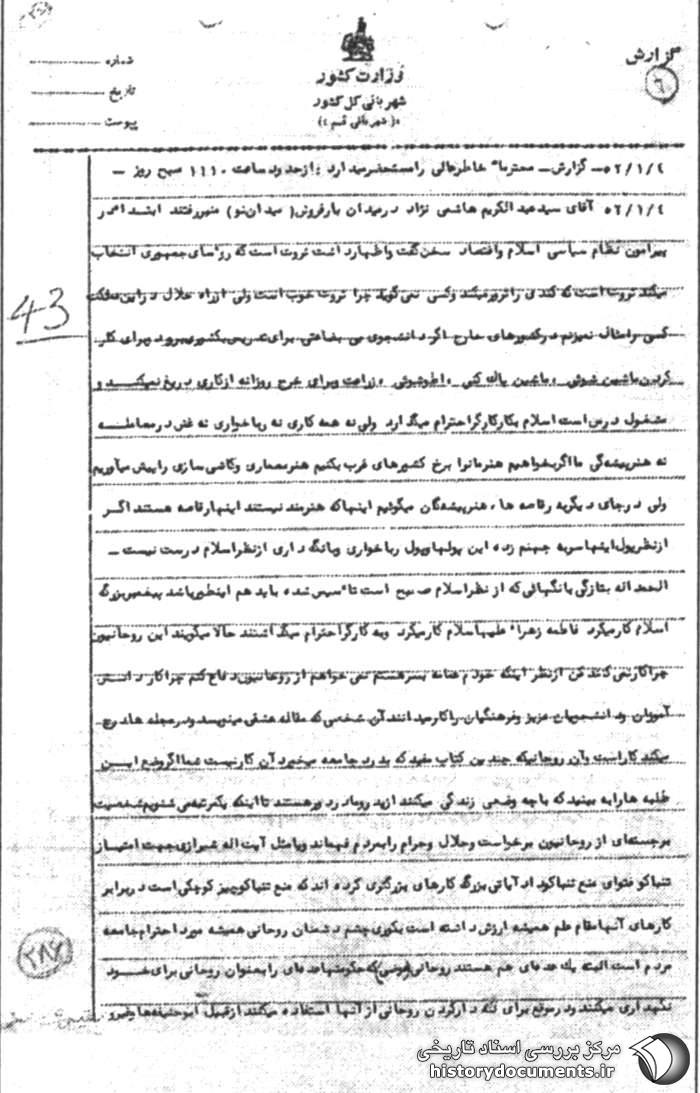 گزارش
وزارت کشور
شهربانی کل کشور
(شهربانی قم)
شماره
تاریخ
پیوست
6
43
۵۲/۱/٤ــ گزارش ــ محترما" خاطرعالی را مستحضر میدارد : از حدود ساعت ۱۱۱۰ صبح روز ــ
۵۲/۱/٤ آقای سید عبدالکریم هاشمی نژاد در میدان بارفروش (میدان نو) منبر رفتند ابتدا در
پیرامون نظام سیاسی اسلام و اقتصاد سخن گفت و اظهار داشت ثروت است که روسای جمهوری انتخاب
میکند ثروت است که کندی را ترور میکند و کسی نمی گوید چرا ثروت خوب است ولی از راه حلال در این مملکت
کسی را مثال نمیزنم در کشورهای خارج اگر دانشجوی بی بضاعتی برای تدریس بکشوری برود و برای کار
کردن ماشین شوئی ، ماشین پاک کنی ، اطوشوئی ، زراعت و برای خرج روزانه از کاری دریغ نمیکند و
مشغول درس است اسلام بکار کارگر احترام میگذارد ولی نه همه کاری نه رباخواری نه غش در معامله
نه هنرپیشه گی ما اگر بخواهیم هنر مانرا برخ کشورهای غرب بکشیم هنر معماری و کاشی سازی را پیش میآوریم
ولی در جای دیگر به رقاصه ها ، هنرپیشه گان میگوئیم اینها که هنرمند نیستند اینها رقاصه هستند اگر
از نظر پول اینها سر به جهنم زده این پولها و پول رباخواری و بانگداری از نظر اسلام درست نیست ــ
الحمداله بتازگی بانگهائی که از نظر اسلام صحیح است تا"سیس شده باید هم اینطور باشد پیغمبر بزرگ
اسلام کار میکرد فاطمه زهرا" علیها سلام کار میکرد و به کارگر احترام میگذاشتند حالا میگویند این روحانیون
چرا کار نمی کنند من از نظر اینکه خودم عمامه بسر هستم نمی خواهم از روحانیون دفاع کنم چرا کار دانش
آموزان و دانشجویان عزیز و فرهنگیان را کار میدانند آن شخصی که مقاله عشقی مینویسد و در مجله ها درج
میکند کار است و آن روحانیکه چندین کتاب مفید که بدرد جامعه میخورد آن کار نیست شما اگر وضع این
طلبه ها را به بینید که با چه وضعی زندگی میکنند از پدر و مادر دور هستند تا اینکه یکمرتبه می شنویم شخصیت
برجسته ای از روحانیون برخواست و حلال و حرام را بمردم فهماند و یا مثل آیت اله شیرازی جهت امتیاز
تنباکو فتوای منع تنباکو داد آیاتی بزرگ کارهای بزرگتری کرده اند که منع تنباکو چیز کوچکی است در برابر
کارهای آنها مقام علم همیشه ارزش داشته است بکوری چشم دشمنان روحانی همیشه مورد احترام جامعه
مردم است البته یک عده ای هم هستند روحانی که حکومتها عده ای را بعنوان روحانی برای خود
نگهداری میکنند و در موقع برای لکه دار کردن روحانی از آنها استفاده میکنند از قبیل ابوحنیفه ها و غیرو
۲۸۷
مرکز بررسی اسناد تاریخی
historydocuments.ir